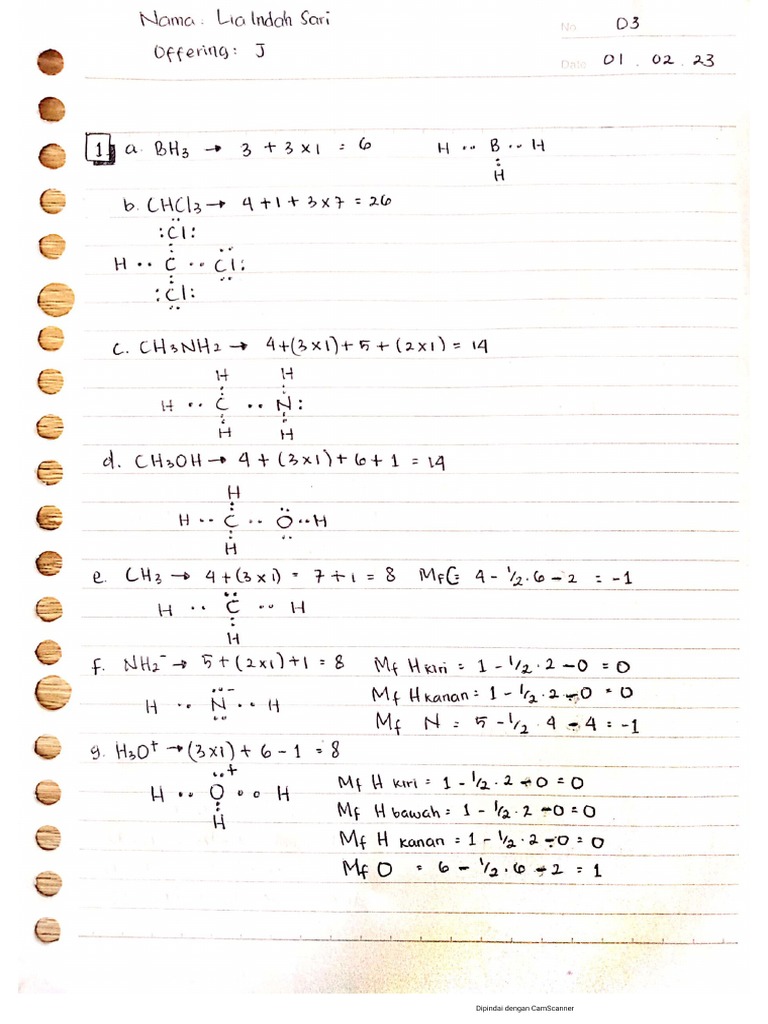 Nama : Lia Indah Sari
No. 03
Offering : J
Date 01 . 02 . 23
1 a. BH3 → 3 + 3x1 = 6
H •• B •• H
H
b. CHCl3 → 4+1+3x7 = 26
:Cl:
H •• C •• Cl:
:Cl:
c. CH3NH2 → 4+(3x1)+5+(2x1) = 14
H H
H •• C •• N:
H H
d. CH3OH → 4+(3x1)+6+1 = 14
H
H •• C •• O •• H
H
e. CH3 → 4+(3x1) = 7+1 = 8 MfC = 4 - 1/2.6 - 2 = -1
H •• C •• H
H
f. NH2⁻ → 5+(2x1)+1 = 8 Mf H kiri = 1 - 1/2 . 2 - 0 = 0
Mf H kanan = 1 - 1/2 . 2 - 0 = 0
H •• N •• H
Mf N = 5 - 1/2 . 4 - 4 = -1
g. H3O⁺ → (3x1) + 6 - 1 = 8
Mf H kiri = 1 - 1/2 . 2 - 0 = 0
H •• O⁺ •• H
H
Mf H bawah = 1 - 1/2 . 2 - 0 = 0
Mf H kanan = 1 - 1/2 . 2 - 0 = 0
Mf O = 6 - 1/2 . 6 - 2 = 1
Dipindai dengan CamScanner